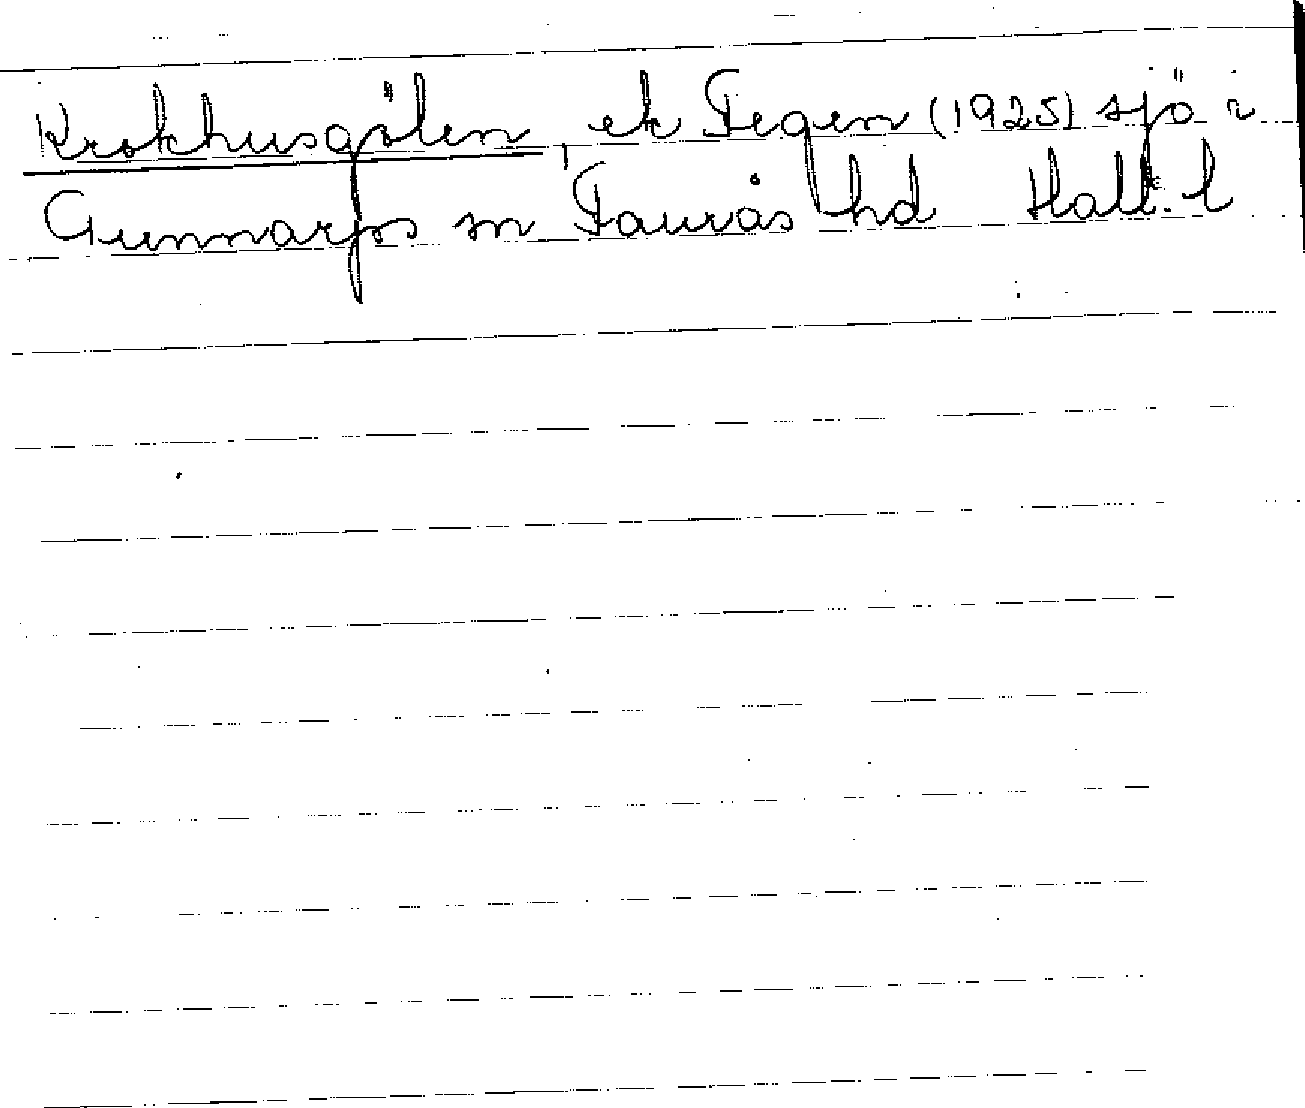 Krokhusgölen, ek Fegen (1925) sjö i
Gunnarps sn Faurås hd Hall. l